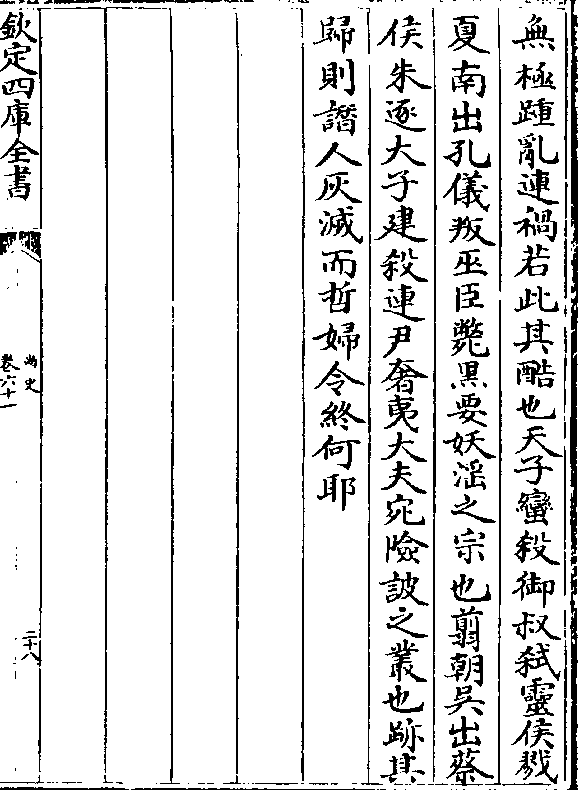 無極踵亂連禍若此其酷也夭子蠻殺御叔弑靈侯戮
夏南出孔儀叛巫臣斃黒要妖滛之宗也翦朝吳出蔡
侯朱逐大子建殺連尹奢夷大夫宛險詖之叢也跡其
歸則譖人灰滅而哲婦令終何耶
欽定四庫全書
尚史
卷六十一
二十八